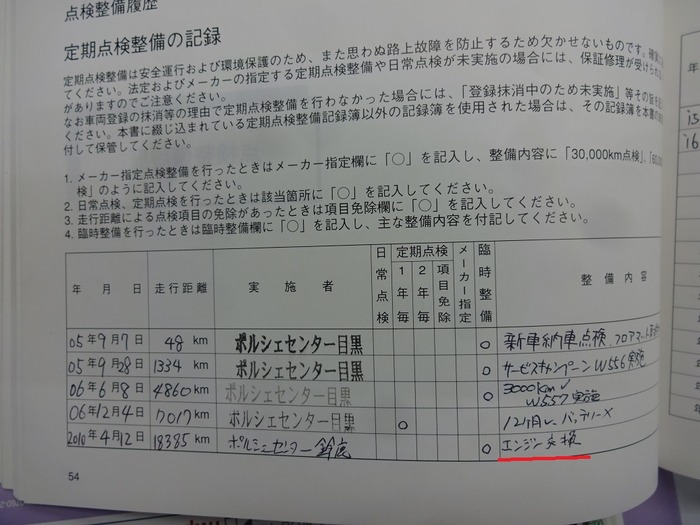 点検整備履歴
定期点検整備の記録
定期点検整備は安全運行および環境保護のため、また思わぬ路上故障を防止するため欠かせないものです。確実に
てください。法定およびメーカーの指定する定期点検整備や日常点検が未実施の場合には、保証修理が受けられ
がありますのでご注意ください。
なお車両登録の抹消等の理由で定期点検整備を行わなかった場合には、「登録抹消中のため未実施」等その旨を
ください。本書に綴じ込まれている定期点検整備記録簿以外の記録簿を使用された場合は、その記録簿を本書
付して保管してください。
1. メーカー指定点検整備を行ったときはメーカー指定欄に「○」を記入し、整備内容に「30,000km点検」、「60,0
検」のように記入してください。
2. 日常点検、定期点検を行ったときは該当箇所に「○」を記入してください。
3. 走行距離による点検項目の免除があったときは項目免除欄に「○」を記入してください。
4. 臨時整備を行ったときは臨時整備欄に「○」を記入し、主な整備内容を付記してください。
年 月 日 走行距離 実施者 日常点検 定期点検 1年毎 2年毎 項目免除 メーカー指定 臨時整備 整備内容
05年9月7日 48 km ポルシェセンター目黒 ○ 新車納車点検、フロアマット
05年9月28日 1334 km ポルシェセンター目黒 ○ サービスキャンペーン W556実施
06年6月8日 4860 km ポルシェセンター目黒 ○ 3000km W557実施
06年12月4日 7017 km ポルシェセンター目黒 ○ 12ヶ月 バッテリー×
2010年4月12日 18385 km ポルシェセンター鈴鹿 ○ エンジン交換
54
年
'15
'16